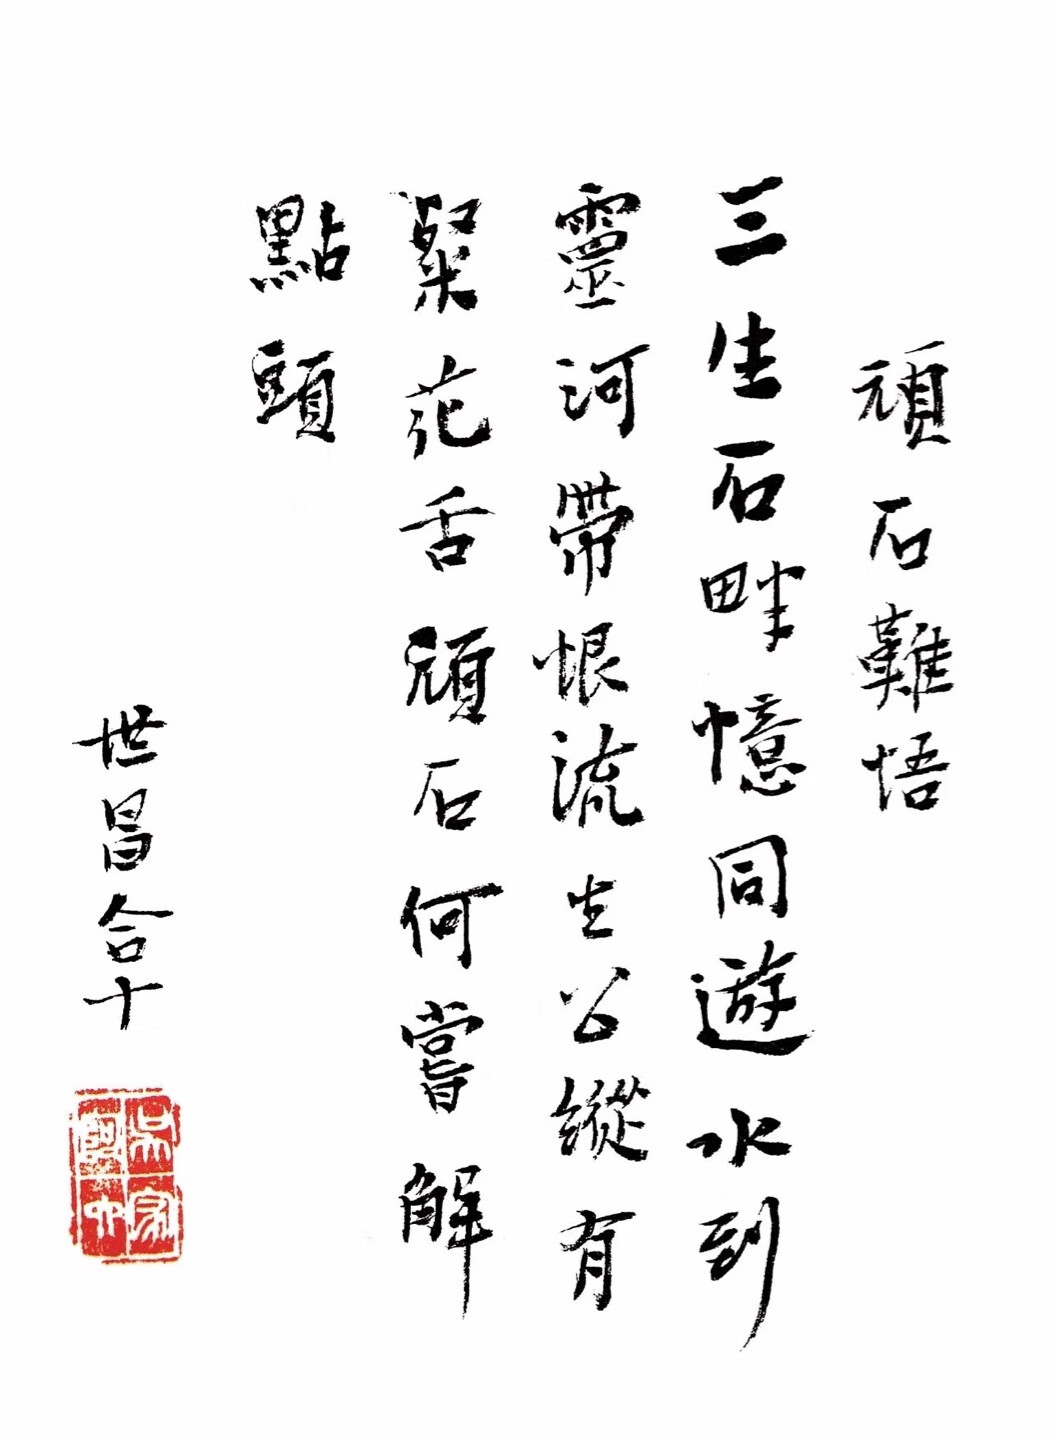 頑石難悟
三生石畔憶同遊水到
靈河帶恨流生公縱有
粲花舌頑石何嘗解
點頭
世昌合十